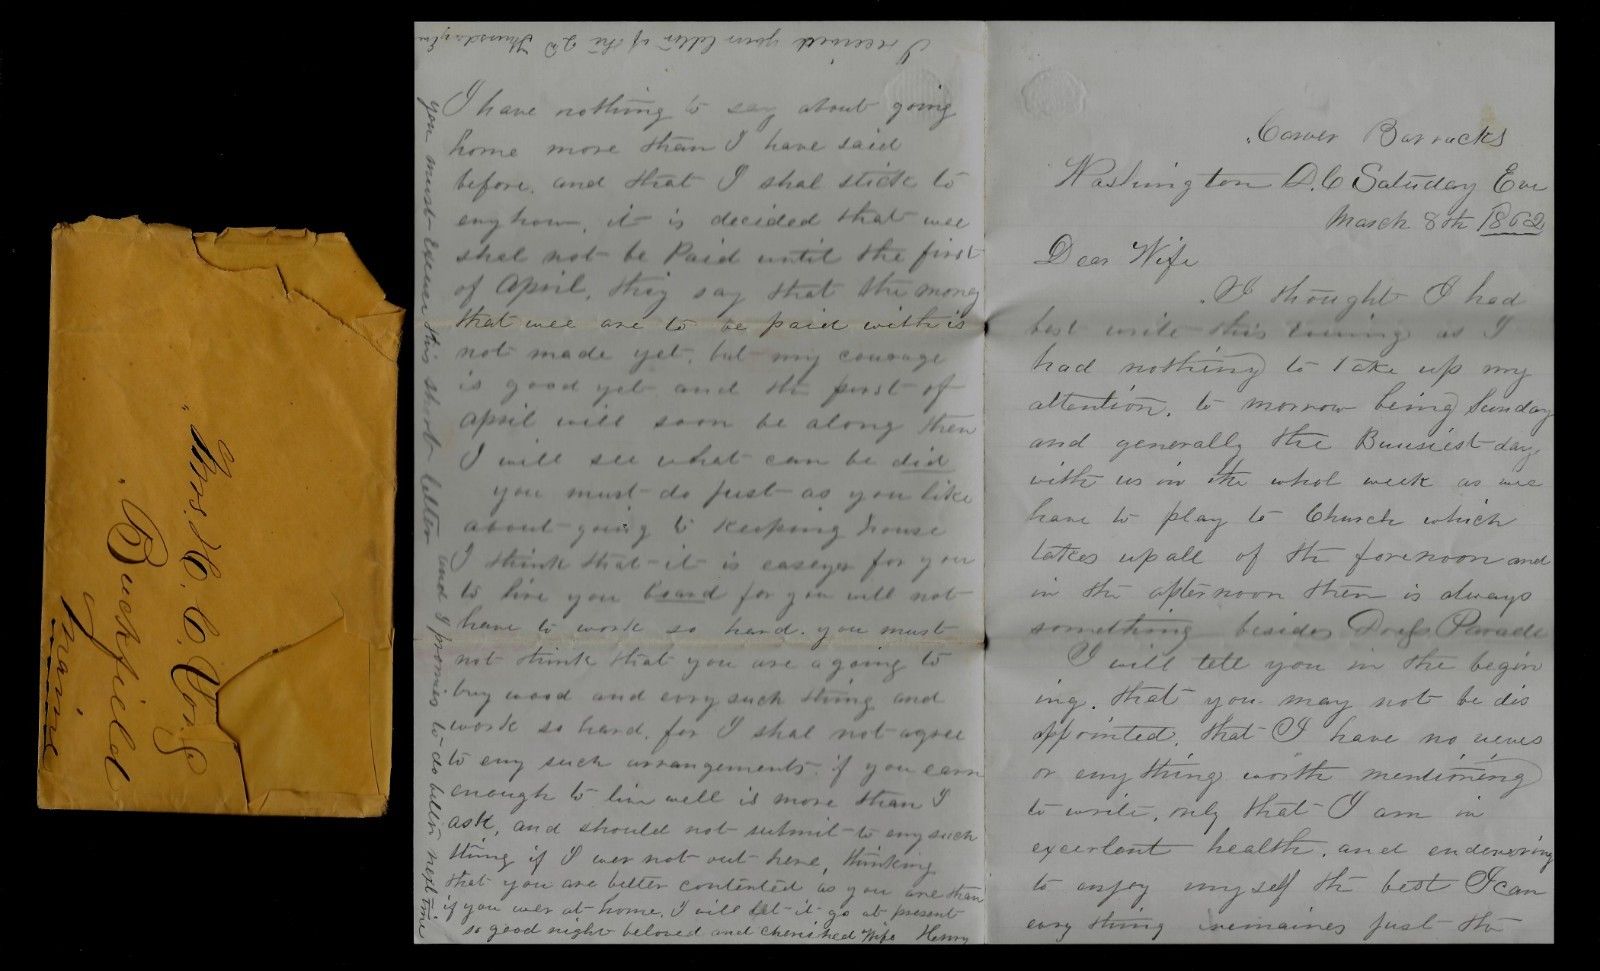 Mrs. H. C. 
Buckfield
Maine
Carver Barracks
Washington D.C Saturday Eve
March 8th 1862
Dear Wife
I thought I had
best write this evening as I
had nothing to take up my
attention. to morrow being Sunday
and generally the Buusiest day
with us in the whol week as wee
have to play to Church which
takes up all of the forenoon and
in the afternoon there is always
something besides Dress Parade
I will tell you in the begin
ing. that you may not be dis
appointed. that I have no news
or eny thing worth mentioning
to write, only that I am in
excerlent health. and endevering
to enjoy myself the best I can
evry thing remaines just the
I have nothing to say about going
home more than I have said
before. and that I shal stick to
eny how. it is decided that wee
shal not be Paid until the first
of April. they say that the money
that wee are to be paid with is
not made yet. but my courage
is good yet and the first of
april will soon be along then
I will see what can be did
you must do just as you like
about going to keeping house
I think that it is easeyer for you
to hire you board for you will not
have to work so hard. you must
not think that you are agoing to
buy wood and evry such thing and
work so hard. for I shal not agree
to eny such arrangements. if you earn
enough to live well is more than I
ask, and should not submit to eny such
thing if I wer not out here, thinking
that you are better contented as you are than
if you wer at home. I will let it go at present
so good night beloved and cherished Wife Henry
you must Excuse this short letter and I promies to do better next time
I received your letter of the 2d Thursday Eve